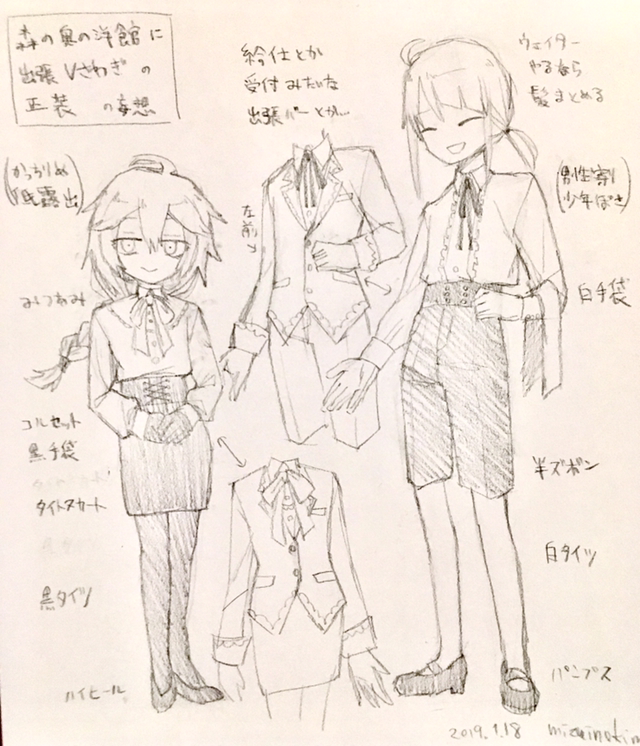 森の奥の洋館に
出張Vさわぎの
正装 の妄想
給仕とか
受付みたいな
出張バーとか…
ウェイター
やるなら
髪まとめる
(かっちりめ
低露出)
左前
(男性寄り
少年ぽさ)
みつあみ
白手袋
コルセット
黒手袋
タイトスカート
半ズボン
白タイツ
黒タイツ
ハイヒール
パンプス
2019.1.18